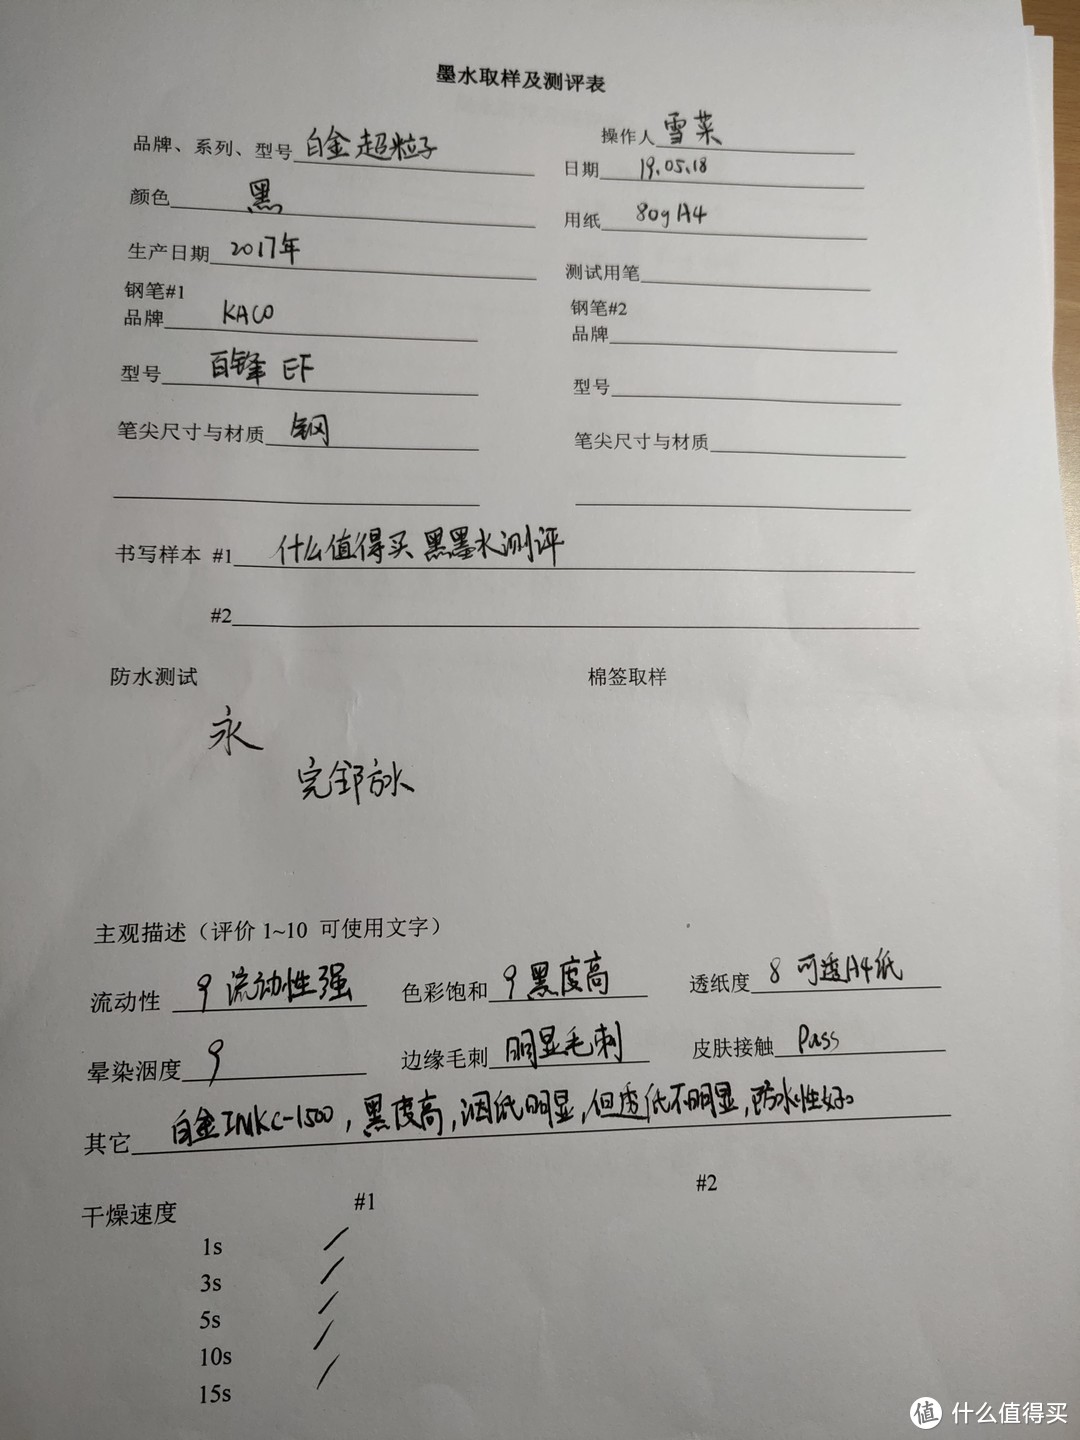 墨水取样及测评表
品牌、系列、型号 白金超粒子 操作人 雪菜
日期 19.05.18
颜色 黑 用纸 80g A4
生产日期 2017年 测试用笔
钢笔#1 钢笔#2
品牌 KACO 品牌
型号 百锋 EF 型号
笔尖尺寸与材质 钢 笔尖尺寸与材质
书写样本 #1 什么值得买 黑墨水测评
#2
防水测试 棉签取样
永
完全防水
主观描述（评价 1~10 可使用文字）
流动性 9 流动性强 色彩饱和 9 黑度高 透纸度 8 可透A4纸
晕染洇度 9 边缘毛刺 明显毛刺 皮肤接触 Pass
其它 白金INKC-1500，黑度高，洇纸明显，但透纸不明显，防水性好。
干燥速度 #1 #2
1s
3s
5s
10s
15s
值 什么值得买